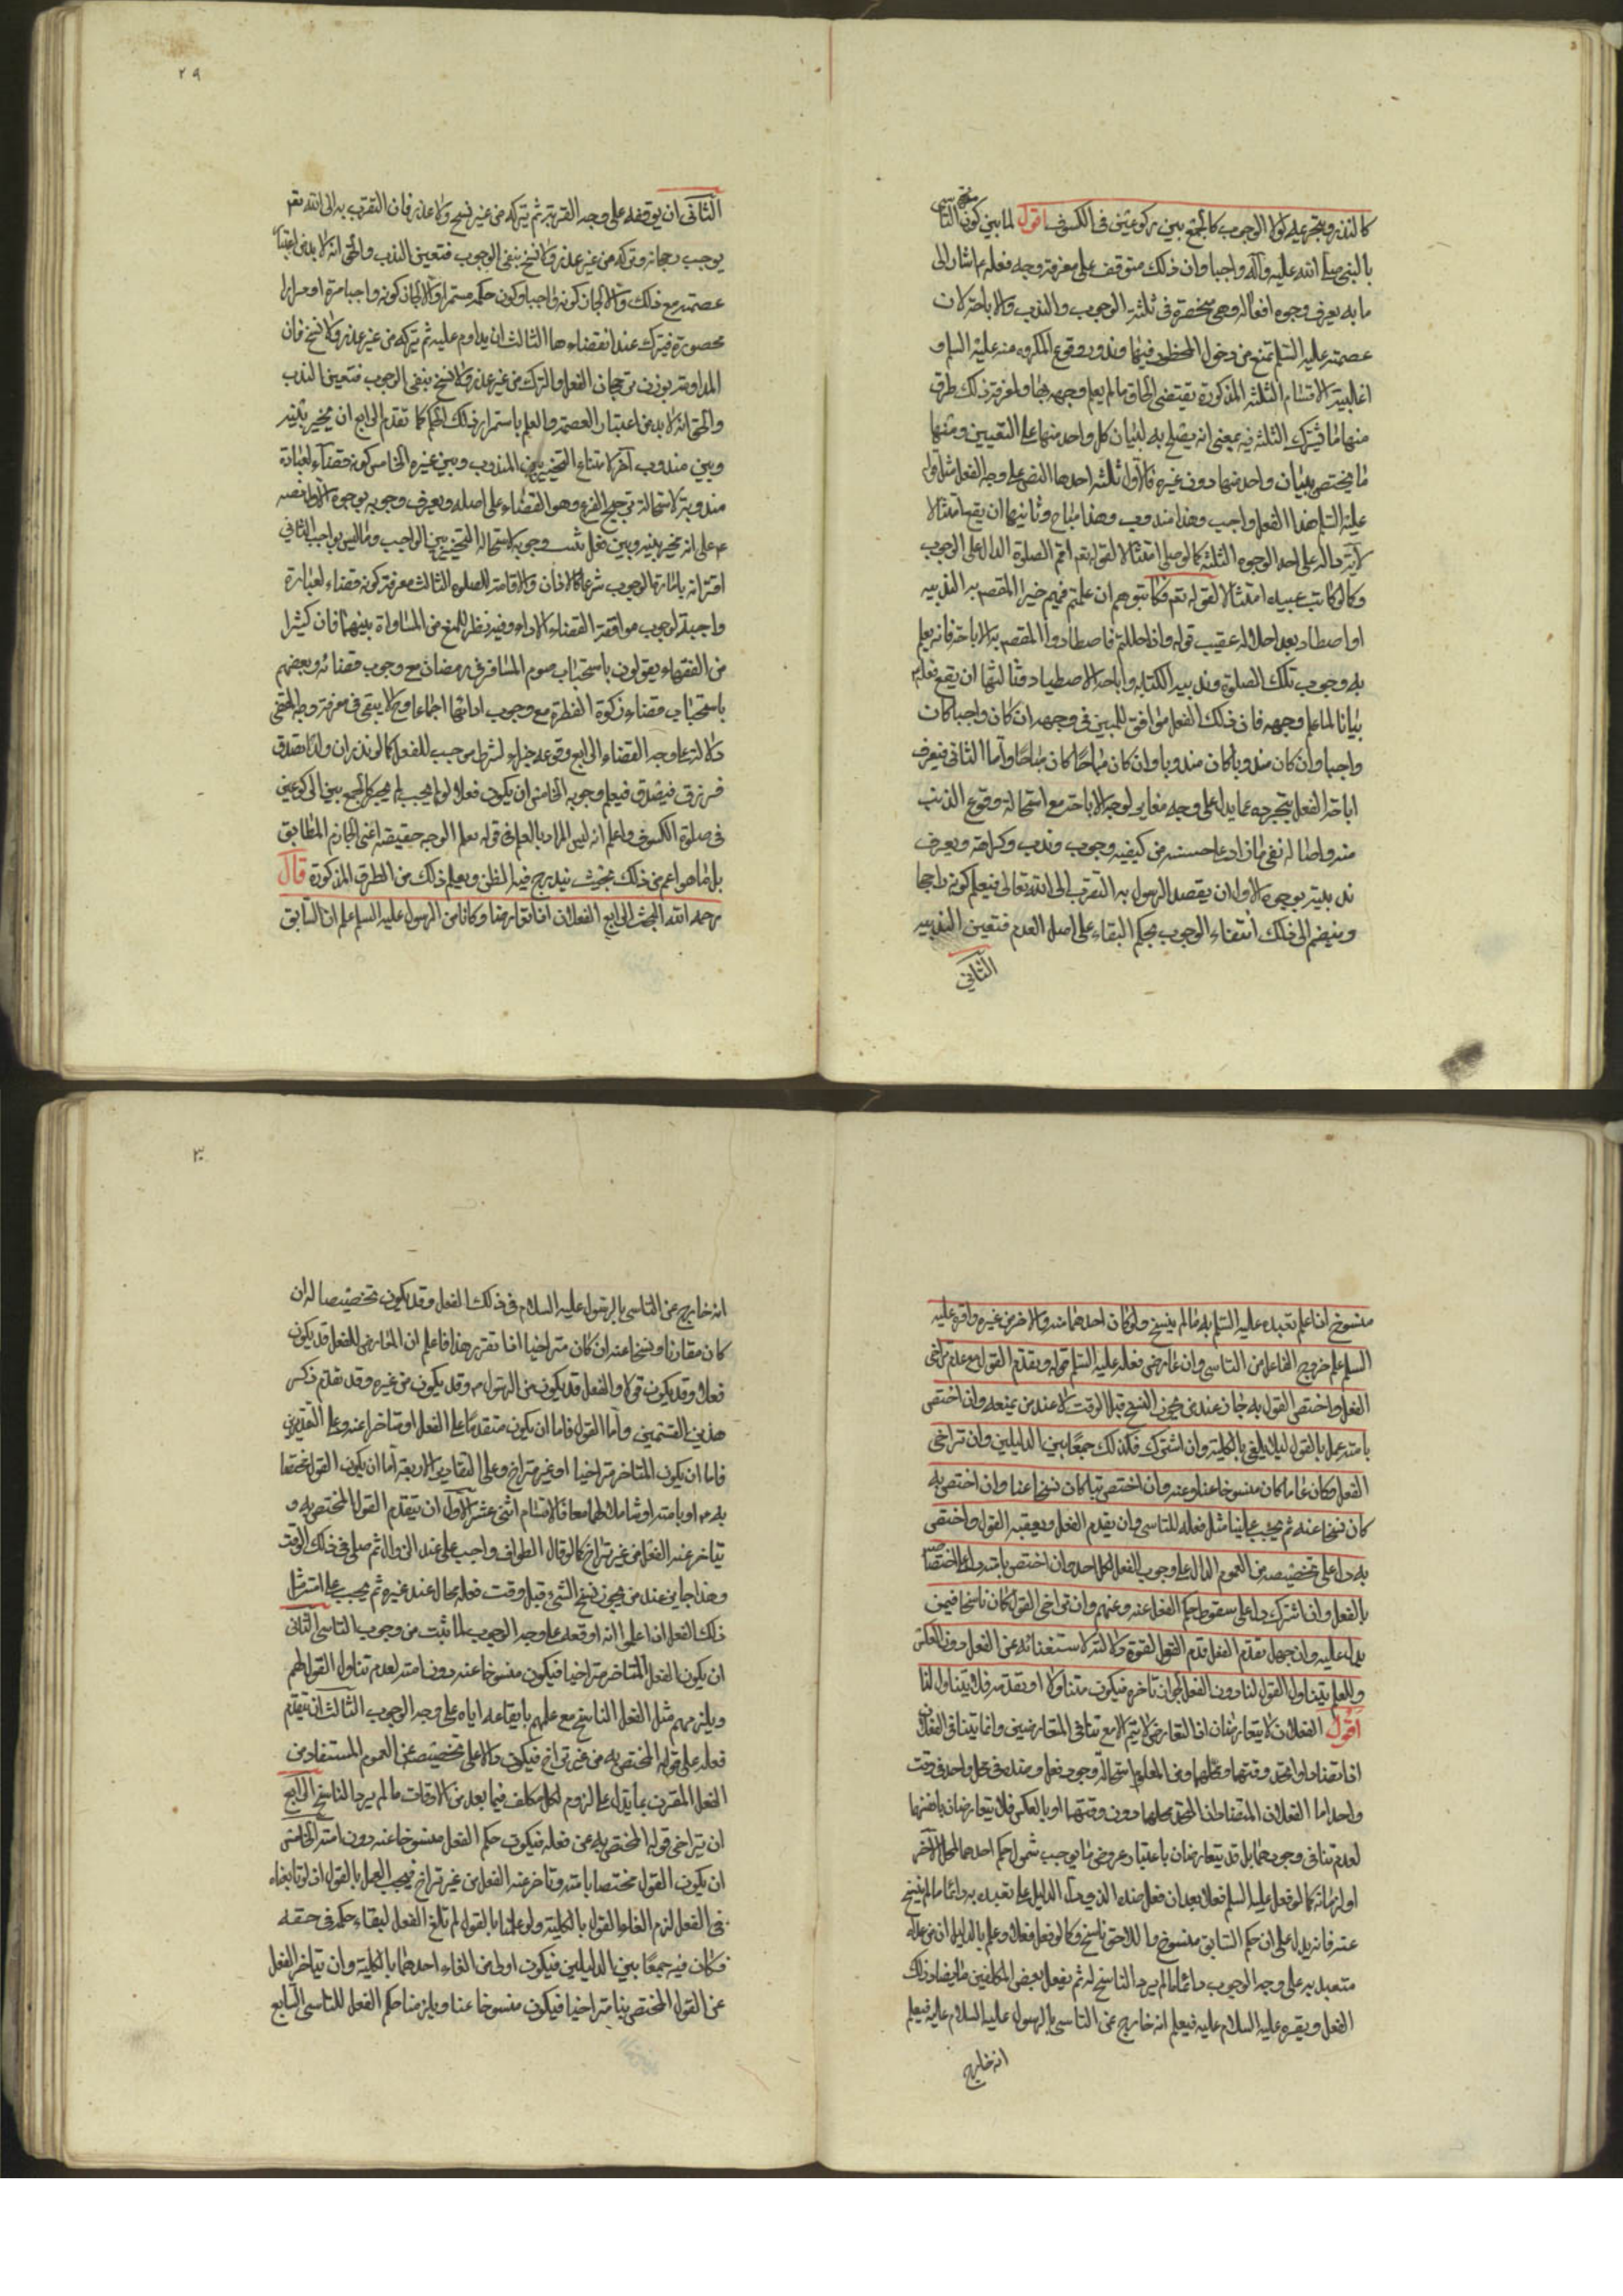 كالنذر وبتحريمه لولا الوجوب كالجمع بين ركوعين في الكسوف اقول لما بين كون التأسي
بالنبي صلى الله عليه وآله واجبا وان ذلك متوقف على معرفة وجه فعله اشار الى
ما به يعرف وجوه افعاله وهي منحصرة في ثلثة الوجوب والندب والاباحة لان
عصمته عليه السلم تمنع من دخول المحظور فيها وندور وقوع المكروه منه عليه السلم و
اغلبية الاقسام الثلثة المذكورة يقتضي الحاق ما لم يعلم وجهه بها ولمعرفة ذلك طرق
منها ما يشترك الثلثة فيه بمعنى انه يصلح به لبيان كل واحد منها على التعيين ومنها
ما يختص ببيان واحد منها دون غيره فالاول ثلثة احدها النص على وجه الفعل مثل قوله
عليه السلم هذا الفعل واجب وهذا مندوب وهذا مباح وثانيها ان يقع امتثالا
لآية دالة على احد الوجوه الثلثة كما لو صلى امتثالا لقوله تعم اقم الصلوة الدال على الوجوب
وكما لو كاتب عبيده امتثالا لقوله تعم فكاتبوهم ان علمتم فيهم خيرا المقصم به الندبية
او اصطاد بعد احلاله عقيب قوله واذا حللتم فاصطادوا المقصم به الاباحة فانه يعلم
به وجوب تلك الصلوة وندبية الكتابة واباحة الاصطياد وثالثها ان يقع فعله
بيانا لما علم وجهه فان ذلك الفعل موافق للمبين في وجهه ان كان واجبا كان
واجبا وان كان مندوبا كان مندوبا وان كان مباحا كان مباحا واما الثاني فيعرف
اباحة الفعل بتجرده عما يدل على وجه مغاير لوجه الاباحة مع استحالة وقوع الذنب
منه واصالة نفي ما زاد على حسنه من كيفية وجوب وندب وكراهة ويعرف
ندبيته بوجوه الاول ان يقصد الرسول به التقرب الى الله تعالى فيعلم كونه راجحا
وينضم الى ذلك انتفاء الوجوب بحكم البقاء على اصل العدم فتعين الندبية
الثاني
٢٩
الثاني ان يوقفه على وجه القربة ثم يتركه من غير نسخ ولا عذر فان التقرب به الى الله تعم
يوجب رجحانه وتركه من غير عذر ولا نسخ ينفي الوجوب فتعين الندب والحق انه لا بد من اعتبار
عصمته مع ذلك والا لجاز كونه واجبا وكون حكمه مستمرا والا لجاز كونه واجبا مرة او مرارا
محصورة فيترك عند انقضاءها الثالث ان يداوم عليه ثم يتركه من غير عذر ولا نسخ فان
المداومة يوذن برجحان الفعل والترك من غير عذر ولا نسخ ينفي الوجوب فتعين الندب
والحق انه لا بد من اعتبار العصمة والعلم باستمرار ذلك الحكم كما تقدم الرابع ان يخير بينه
وبين مندوب آخر لامتناع التخيير بين المندوب وبين غيره الخامس كونه قضاء لعبادة
مندوبة لاستحالة ترجيح الفرع وهو القضاء على اصله ويعرف وجوبه بوجوه الاول نصه
ع على انه مخير بينه وبين فعل ثبت وجوبه لاستحالة التخيير بين الواجب وما ليس بواجب الثاني
اقترانه بامارة الوجوب شرعا كالاذان والاقامة للصلوه الثالث معرفة كونه قضاء لعبادة
واجبة لوجوب موافقة القضاء الاداء وفيه نظر للمنع من المساواة بينهما فان كثيرا
من الفقهاء يقولون باستحباب صوم المسافر في رمضان مع وجوب قضائه وبعضهم
باستحباب قضاء زكوة الفطرة مع وجوب ادائها اجماعا وح لا يبقى في معرفة وجه المقضي
دلالة على وجه القضاء الرابع وقوعه جزاء لشرط موجب للفعل كما لو نذر ان ولدا تصدق
فرزق فيصدق فيعلم وجوبه الخامس ان يكون فعلا لو لم يجب لم يجز كالجمع بين الركوعين
في صلوة الكسوف واعلم انه ليس المراد بالعلم في قوله يعلم الوجه حقيقته اعني الجازم المطابق
بل ما هو اعم من ذلك بحيث يندرج فيه الظن ويعلم ذلك من الطرق المذكورة قال
رحمه الله البحث الرابع الفعلان اذا تعارضا وكانا من الرسول عليه السلم علم ان السابق
منسوخ اذا علم تعبده عليه السلم به ما لم ينسخ ولو كان احدهما منه والاخر من غيره واقره عليه
السلم علم خروج الفاعل من التاسي وان عارض فعله عليه السلم قوله وتقدم القول مع عدم تراخي
الفعل واختص القول به جاز عند من يجوز النسخ قبل الوقت لا عند من يمنعه وان اختص
بامته عمل بالقول ليلا يلغى بالكلية وان اشترك فكذلك جمعا بين الدليلين وان تراخى
الفعل وكان عاما كان منسوخا عنا وعنه وان اختص بنا كان نسخا عنا وان اختص به
كان نسخا عنه ثم يجب علينا مثل فعله للتاسي وان يقدم الفعل ويعقبه القول واختص
به دل على تخصيصه من العموم الدال على وجوب الفعل لكل احد وان اختص بامته دل على اختصاصه
بالفعل وان اشترك دل على سقوط حكم الفعل عنه وعنهم وان تراخى القول كان ناسخا فيمن
يدل عليه وان جهل تقدم الفعل قدم القول لقوة دلالته لاستغنائه عن الفعل دون العكس
وللعلم بتناول القول لنا دون الفعل لجواز تاخره فيكون متناولا او تقدمه فلا يتناول لنا
اقول الفعلان لا يتعارضان اذ التعارض لا يتم الا مع تنافي المتعارضين وانما يتنافى الفعلان
اذا تضادا واتحد وقتهما ومحلهما ومن المعلوم استحالة وجود فعل وضده في محل واحد في وقت
واحد اما الفعلان المتضادان المتحد محلهما دون وقتهما او بالعكس فلا يتعارضان بانفسهما
لعدم تنافي وجودهما بل قد يتعارضان باعتبار عروض ما يوجب شمول حكم احدهما لمحل الآخر
او لزمانه كما لو فعل عليه السلم فعلا بعد ان فعل ضده الذي دل الدليل على تعبده به دائما ما لم ينسخ
عنه فانه يدل على ان حكم السابق منسوخ واللاحق ناسخ وكما لو فعل فعلا وعلم بالدليل ان من عداه
متعبد به على وجه الوجوب دائما ما لم يرد الناسخ له ثم يفعل بعض المكلفين ما يضاد ذلك
الفعل ويقره عليه السلام عليه فيعلم انه خارج عن التاسي بالرسول عليه السلام عليه فيعلم
انه خارج
٣٠
انه خارج عن التاسي بالرسول عليه السلام في ذلك الفعل وقد يكون تخصيصا له ان
كان مقارنا ونسخا عنه ان كان متراخيا اذا تقرر هذا فاعلم ان المعارض للفعل قد يكون
فعلا وقد يكون قولا والفعل قد يكون من الرسول ص وقد يكون من غيره وقد تقدم ذكر
هذين القسمين واما القول فاما ان يكون متقدما على الفعل او متاخرا عنه وعلى التقديرين
فاما ان يكون المتاخر متراخيا او غير متراخ وعلى التقادير الاربعة اما ان يكون القول مختصا
به ص او بامته او شاملا لهما معا فالاقسام اثني عشر الاول ان يتقدم القول المختص به و
يتاخر عنه الفعل من غير تراخ كما لو قال الطواف واجب علي عند الزوال ثم صلى في ذلك الوقت
وهذا جايز عند من يجوز نسخ الشيء قبل وقت فعله محال عند غيره ثم يجب على امته مثل
ذلك الفعل اذا علم انه اوقعه على وجه الوجوب لما ثبت من وجوب التاسي الثاني
ان يكون الفعل المتاخر متراخيا فيكون منسوخا عنه دون امته لعدم تناول القول لهم
ويلزمهم مثل الفعل الناسخ مع علمهم بايقاعه اياه على وجه الوجوب الثالث ان يتقدم
فعله على قوله المختص به من غير تراخ فيكون دالا على تخصيصه عن العموم المستفاد من
الفعل المقترن بما يدل على لزومه لكل مكلف فيما بعد من الاوقات ما لم يرد الناسخ الرابع
ان يتراخى قوله المختص به عن فعله فيكون حكم الفعل منسوخا عنه دون امته الخامس
ان يكون القول مختصا بامته وتاخر عنه الفعل من غير تراخ فيجب العمل بالقول اذ لو تابعناه
في الفعل لزم الغاء القول بالكلية ولو عملنا بالقول لم نلغ الفعل لبقاء حكمه في حقه
فكان فيه جمعا بين الدليلين فيكون اولى من الغاء احدهما بالكلية وان يتاخر الفعل
عن القول المختص بنا متراخيا فيكون منسوخا عنا ويلزمنا حكم الفعل للتاسي السابع